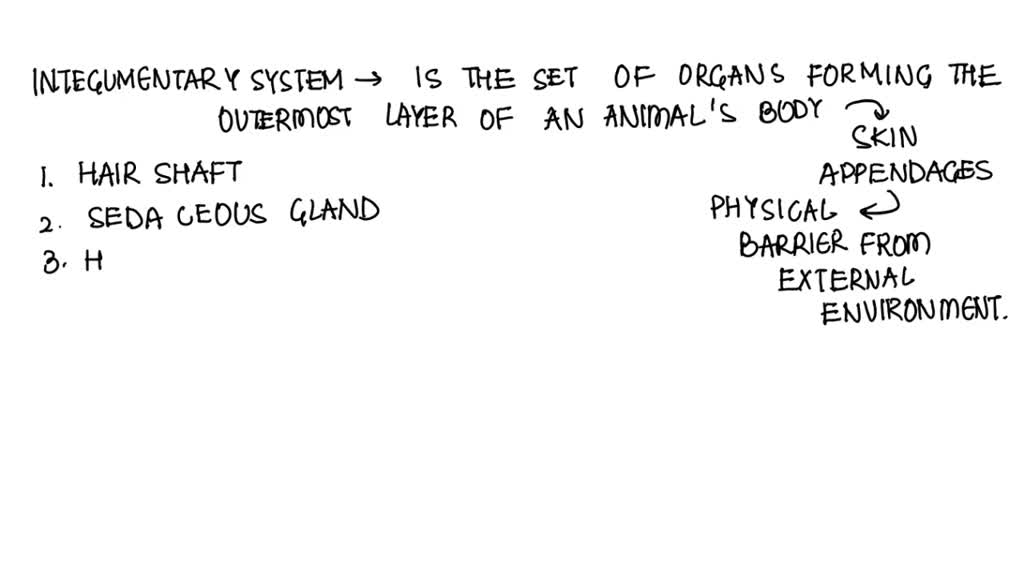 INTEGUMENTARY SYSTEM → IS THE SET OF ORGANS FORMING THE
OUTERMOST LAYER OF AN ANIMAL'S BODY
SKIN
APPENDAGES
PHYSICAL
BARRIER FROM
EXTERNAL
ENVIRONMENT.
1. HAIR SHAFT
2. SEDA CEOUS GLAND
3. H